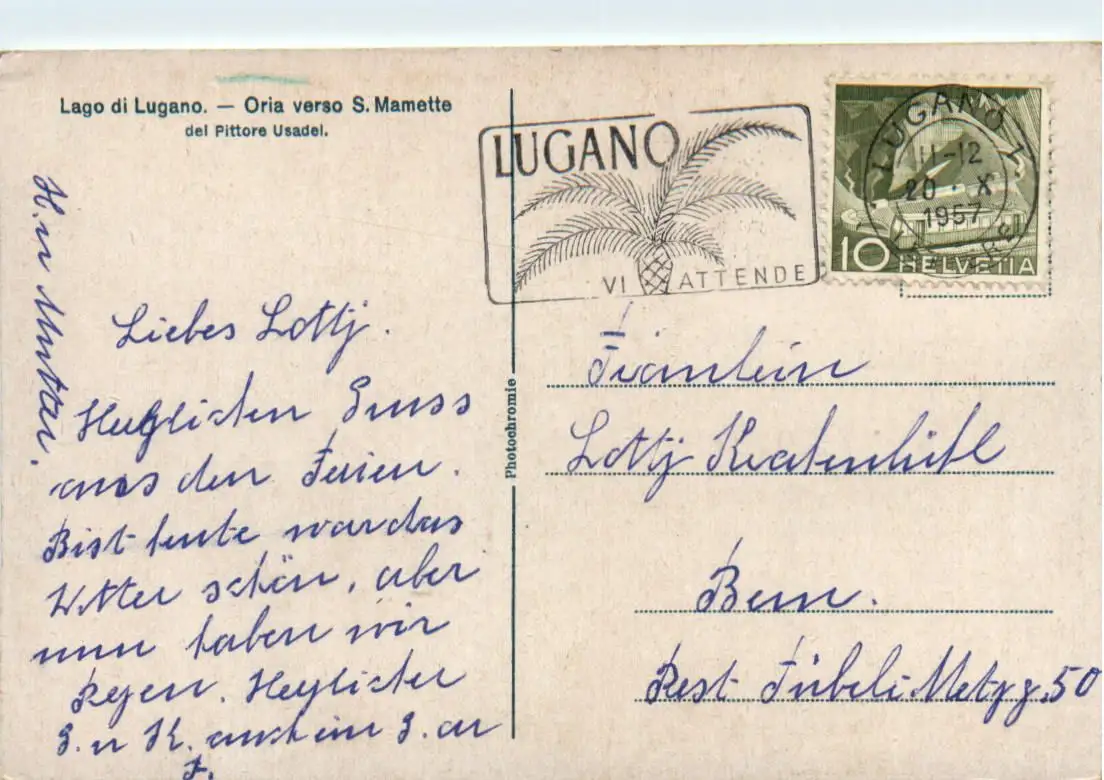 Lago di Lugano. — Oria verso S. Mamette
del Pittore Usadel.
LUGANO
VI ATTENDE
LUGANO 1
11-12
20. X
1957
10 HELVETIA
Photochromie
Liebes Lottj.
Herzlichen Gruss
aus den Ferien.
Bist heute war das
Wetter schön, aber
nun haben wir
Regen. Herzlicher
G. u K. auch ein G. an
F.
H. in Mutter.
Fräulein
Lottj
Bern.
Rest Fübeli Metzg. 50